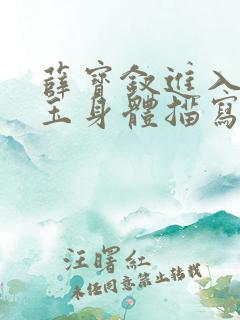 薛寶釵進入
玉身體描寫
汪曙紅
未任同意禁止轉載